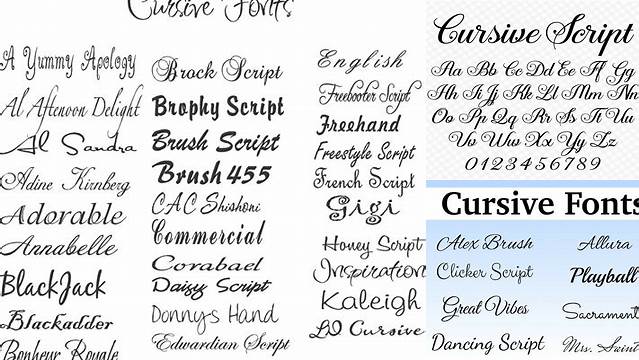 Cursive Fonts
A Yummy Apology
Al Afternoon Delight
Al Sandra
Adine Kirnberg
Adorable
Annabelle
BlackJack
Blackadder
Bonheur Royale
Brock Script
Brophy Script
Brush Script
Brush 455
CAC Shishoni
Commercial
Corabael
Daisy Script
Donny's Hand
Edwardian Script
English
Freebooter Script
Freehand
Freestyle Script
French Script
Gigi
Honey Script
Inspiration
Kaleigh
LD Cursive
Cursive Script
Aa Bb Cc Dd Ee Ff Gg
Hh Ii Jj Kk Ll Mm Nn
Oo Pp Qq Rr Ss Tt
Uu Vv Ww Xx Yy Zz
0 1 2 3 4 5 6 7 8 9
Cursive Fonts
Alex Brush
Clicker Script
Great Vibes
Dancing Script
Allura
Playball
Sacramento
Mrs. Saint